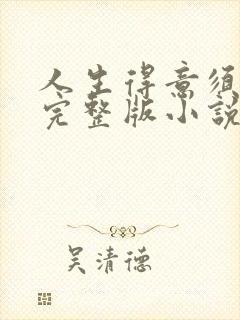 人生得意須
完整版小說
吴清德